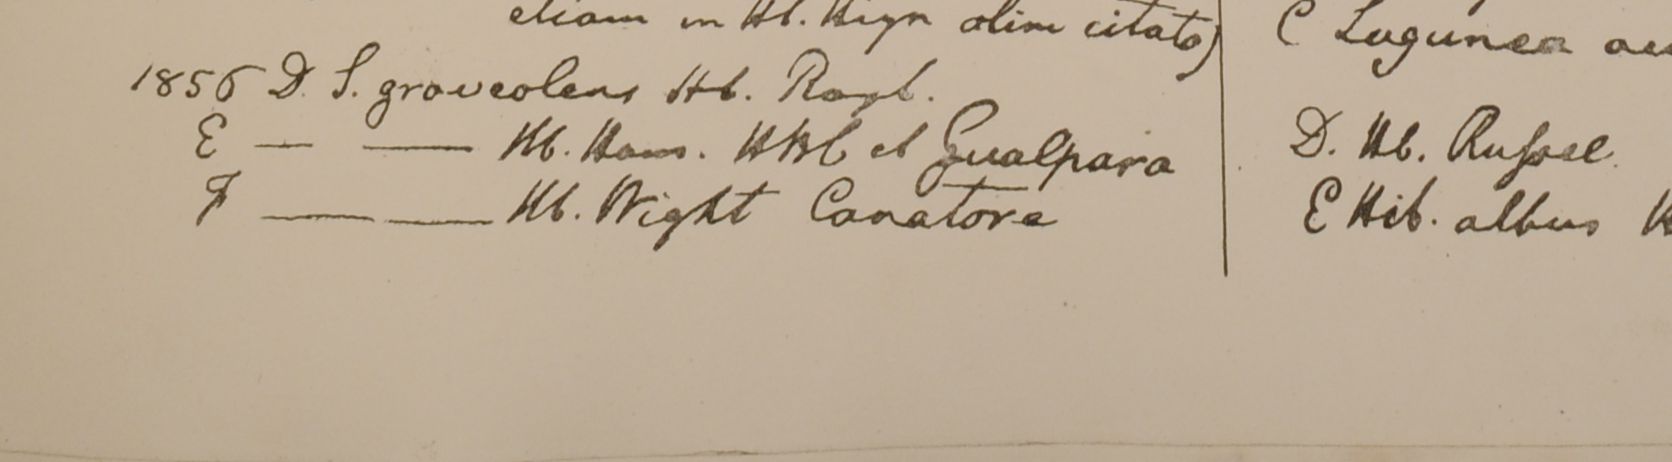 etiam in Hb. Hign olim citato)
1856 D. S. graveolens Hb. Royl.
E — — Hb. Ham. HBC et Gualpara
F — — Hb. Wight Canatore
C Lagunea
D. Hb. Russel.
E Hib. albus